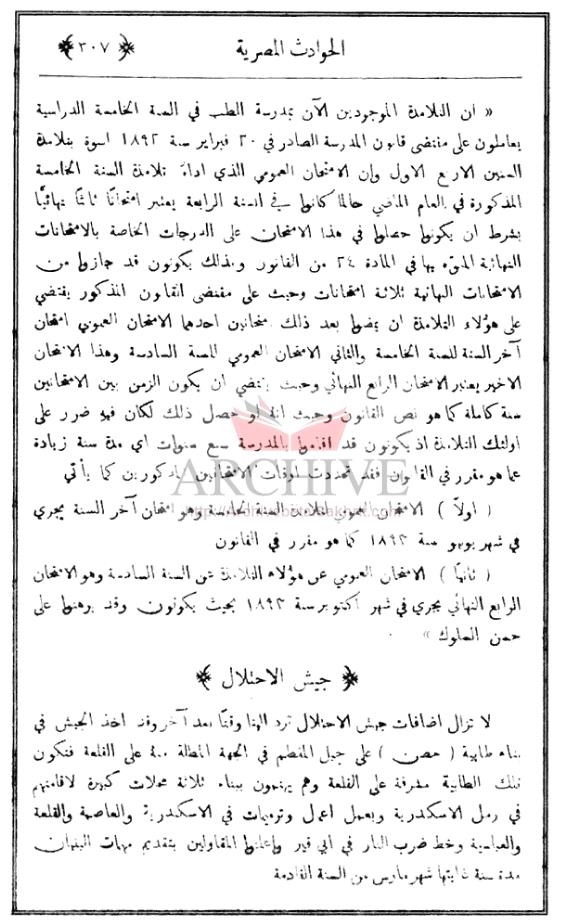 الحوادث المصرية
﴿ ٣٠٧ ﴾
« ان التلامذة الموجودين الآن بمدرسة الطب في السنة الخامسة الدراسية
يعاملون على مقتضى قانون المدرسة الصادر في ٢٠ فبراير سنة ١٨٩٢ اسوة بتلامذة
السنين الاربع الاول وإن الامتحان العمومي الذي اداهُ تلامذة السنة الخامسة
المذكورة في العام الماضي حالما كانوا في السنة الرابعة يعتبر امتحانًا ثانيًا نهائيًا
بشرط ان يكونوا حصلوا في هذا الامتحان على الدرجات الخاصة بالامتحانات
النهائية المنوّه بها في المادة ٢٤ من القانون وبذلك يكونون قد جازوا من
الامتحانات النهائية ثلاثة امتحانات وحيث على مقتضى القانون المذكور يقتضي
على هؤلاء التلامذة ان يمضوا بعد ذلك امتحانين احدهما الامتحان العمومي امتحان
آخر السنة للسنة الخامسة والثاني الامتحان العمومي للسنة السادسة وهذا الامتحان
الاخير يعتبر الامتحان الرابع النهائي وحيث يقتضي ان يكون الزمن بين الامتحانين
سنة كاملة كما هو نص القانون وحيث انهُ لو حصل ذلك لكان فيهِ ضرر على
اولئك التلامذة اذ يكونون قد اقاموا بالمدرسة سبع سنوات اي مدة سنة زيادة
عما هو مقرر في القانون فقد تحددت اوقات الامتحانين المذكورين كما يأتي
( اولاً ) الامتحان العمومي لتلامذة السنة الخامسة وهو امتحان آخر السنة يجري
في شهر يونيو سنة ١٨٩٣ كما هو مقرر في القانون
( ثانيًا ) الامتحان العمومي عن هؤلاء التلامذة عن السنة السادسة وهو الامتحان
الرابع النهائي يجري في شهر اكتوبر سنة ١٨٩٣ بحيث يكونون وقد برهنوا على
حسن السلوك »
﴿ جيش الاحتلال ﴾
لا تزال اضافات جيش الاحتلال ترد الينا وقتًا بعد آخر وقد اخذ الجيش في
بناء طابية ( حصن ) على جبل المقطم في الجهة المطلة منهُ على القلعة فتكون
تلك الطابية مشرفة على القلعة وهم يهتمون ببناء ثلاثة محلات كبيرة لاقامتهم
في رمل الاسكندرية وبعمل اعمال وترميمات في الاسكندرية والعاصمة والقلعة
والعباسية وخط ضرب النار في ابي قير وإعلنوا المقاولين بتقديم مهات البنيان
مدة سنة غايتها شهر مارس من السنة القادمة
ARCHIVE